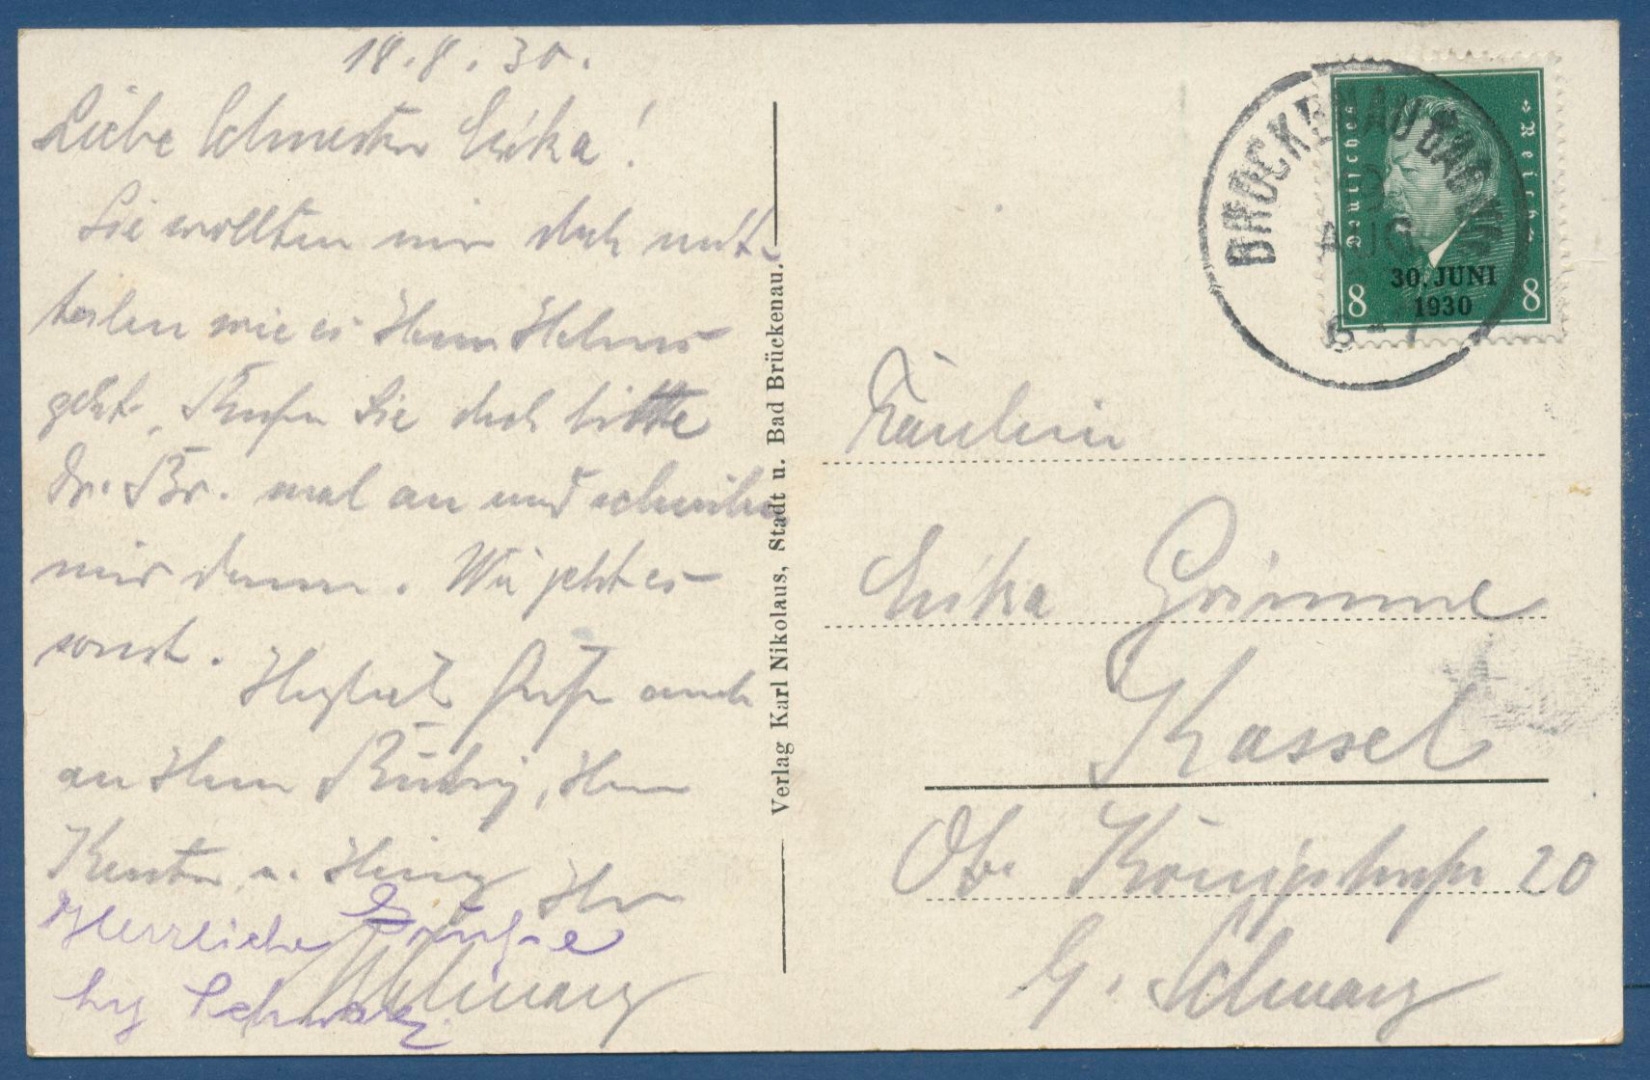 18.8.30.
Liebe Schwester Erika!
Sie wollten mir doch mit-
teilen wie es Herrn
geht. Rufen Sie doch bitte
Dr. Br. mal an und schreiben
mir dann. Wie geht es
sonst.
Herzlich Grüße auch
an Herrn Herrn
u. Ihr
Schwarz
Herzliche Grüße
Schwarz
Verlag Karl Nikolaus, Stadt u. Bad Brückenau.
BRÜCKENAU BAD
AUG
6-7
Deutsches Reich
30. JUNI
1930
8 8
Fräulein
Erika Grimme
Kassel
Ob. Königstraße 20
G. Schwarz